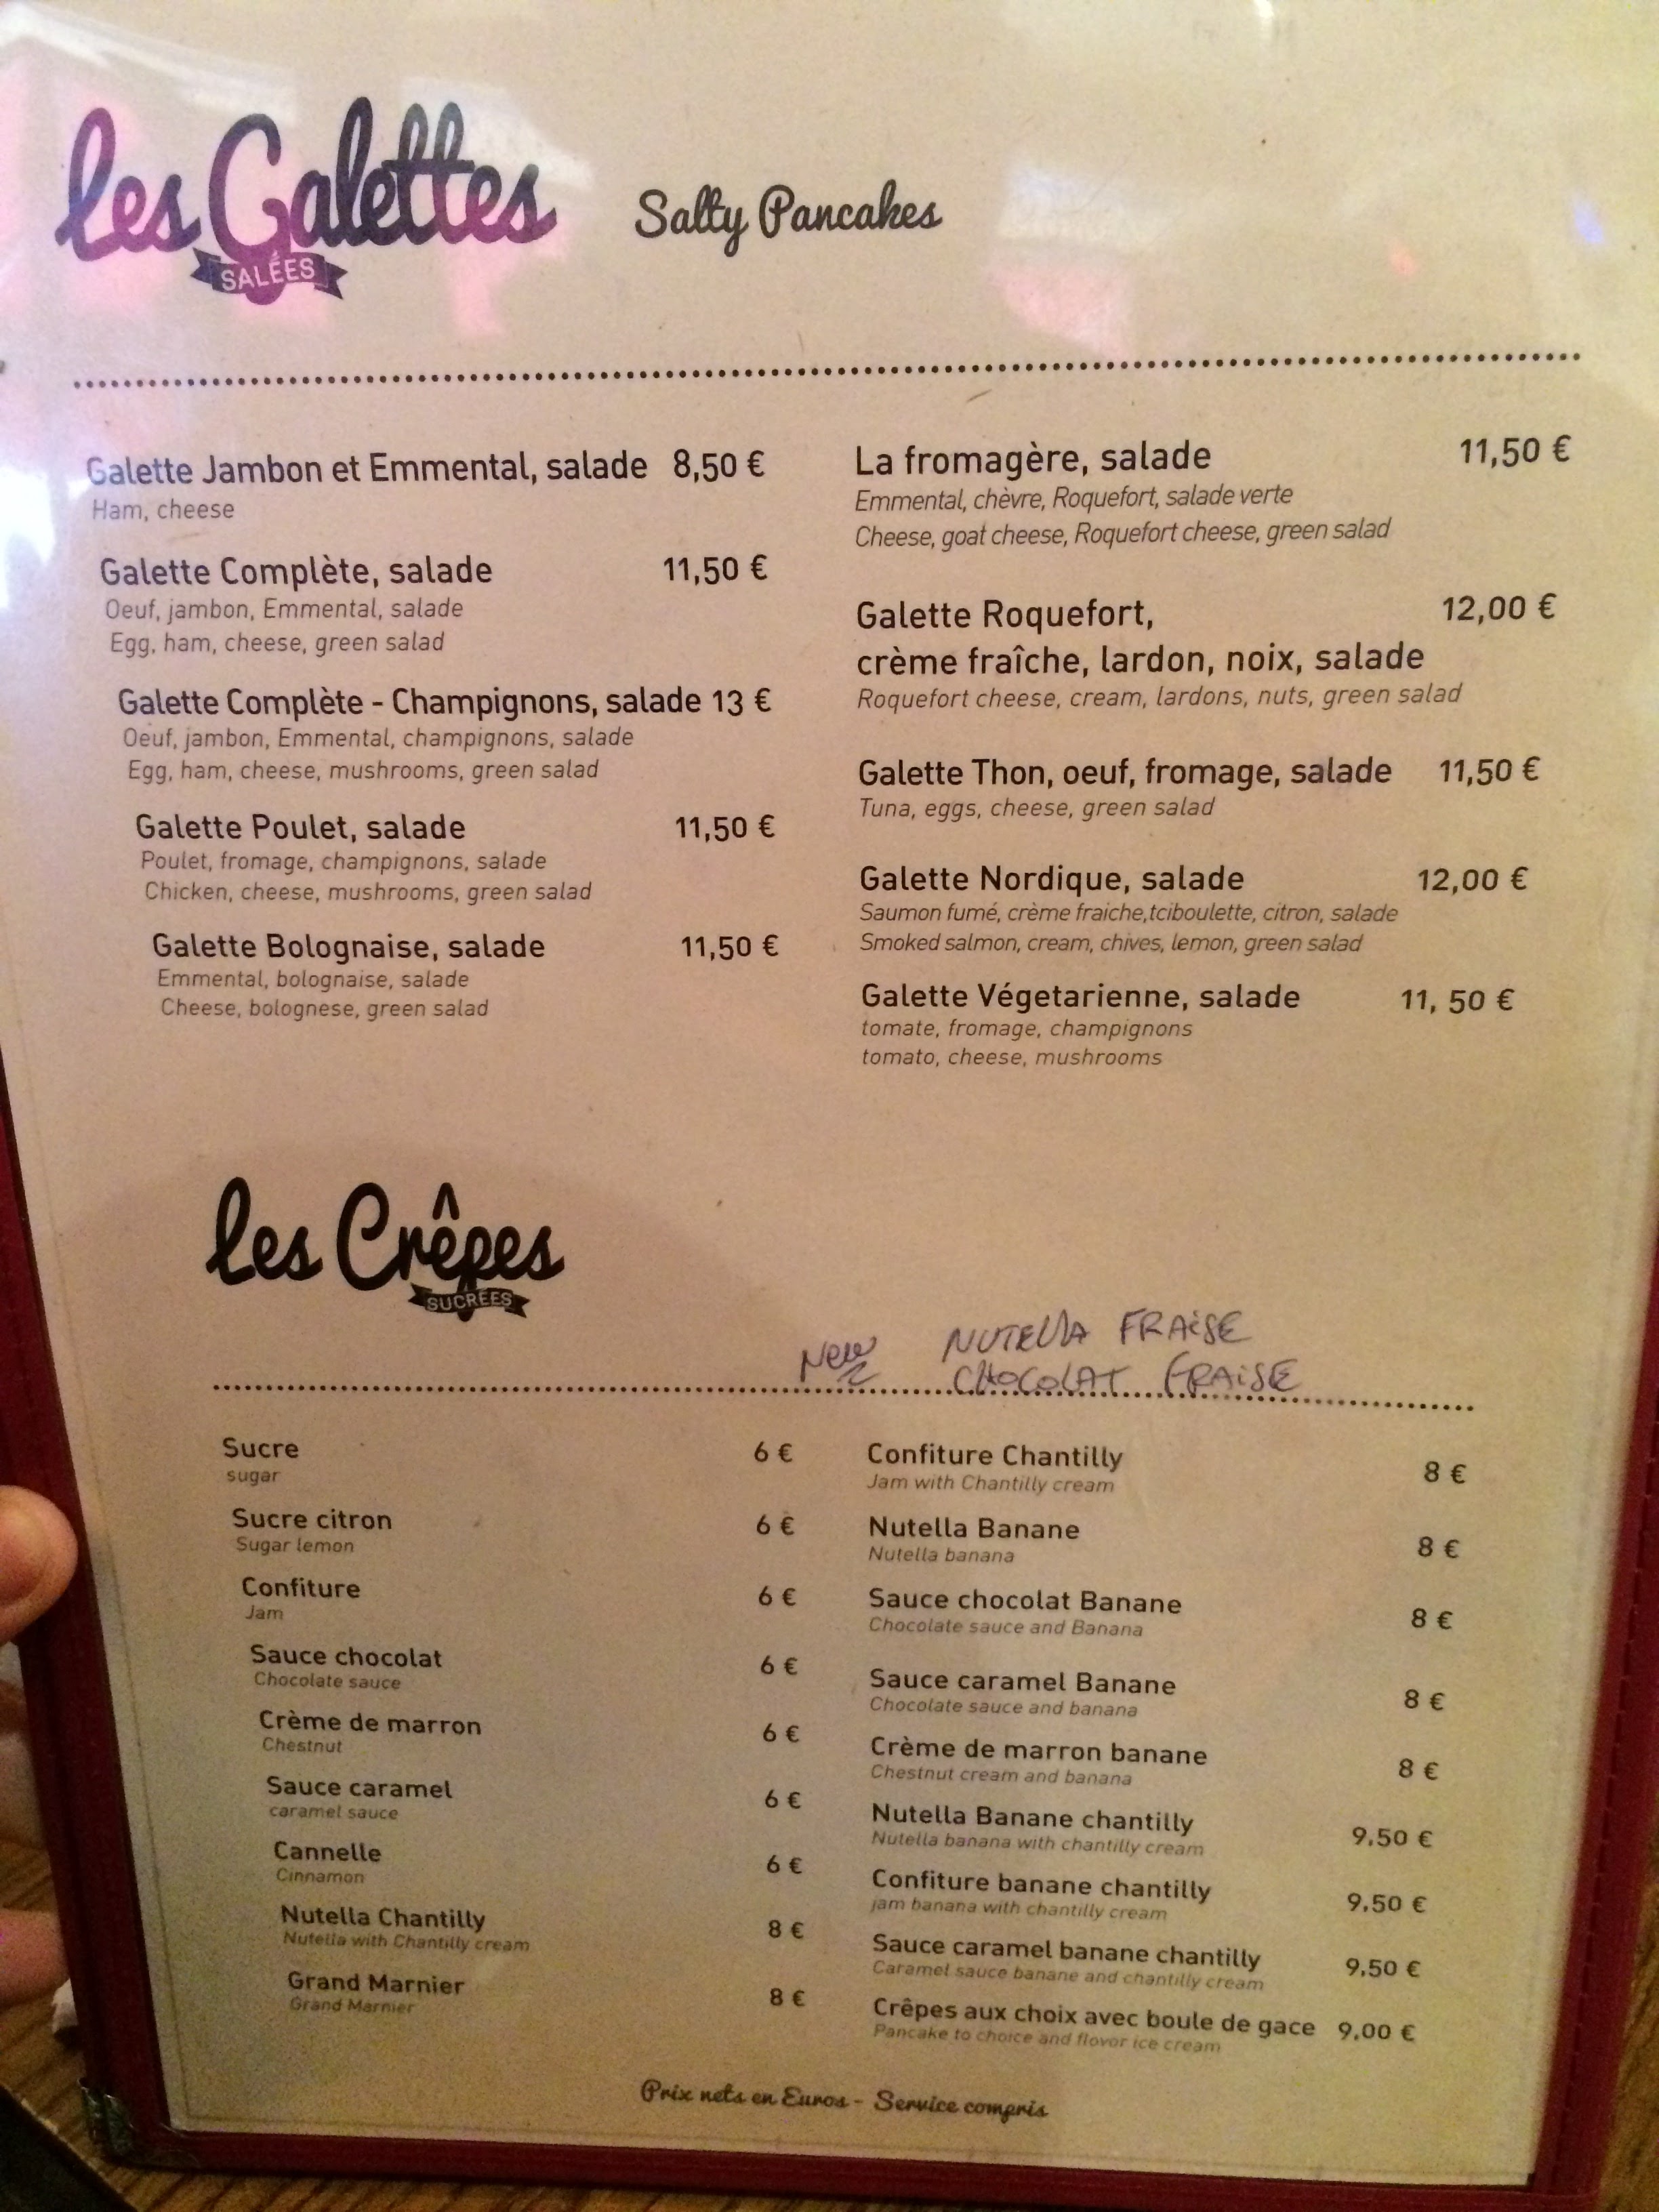 les Galettes
SALÉES
Salty Pancakes
Galette Jambon et Emmental, salade 8,50 €
Ham, cheese
Galette Complète, salade 11,50 €
Oeuf, jambon, Emmental, salade
Egg, ham, cheese, green salad
Galette Complète - Champignons, salade 13 €
Oeuf, jambon, Emmental, champignons, salade
Egg, ham, cheese, mushrooms, green salad
Galette Poulet, salade 11,50 €
Poulet, fromage, champignons, salade
Chicken, cheese, mushrooms, green salad
Galette Bolognaise, salade 11,50 €
Emmental, bolognaise, salade
Cheese, bolognese, green salad
La fromagère, salade 11,50 €
Emmental, chèvre, Roquefort, salade verte
Cheese, goat cheese, Roquefort cheese, green salad
Galette Roquefort, 12,00 €
crème fraîche, lardon, noix, salade
Roquefort cheese, cream, lardons, nuts, green salad
Galette Thon, oeuf, fromage, salade 11,50 €
Tuna, eggs, cheese, green salad
Galette Nordique, salade 12,00 €
Saumon fumé, crème fraiche,tciboulette, citron, salade
Smoked salmon, cream, chives, lemon, green salad
Galette Végetarienne, salade 11, 50 €
tomate, fromage, champignons
tomato, cheese, mushrooms
les Crêpes
SUCRÉES
New NUTELLA FRAISE
CHOCOLAT FRAISE
Sucre 6 €
sugar
Sucre citron 6 €
Sugar lemon
Confiture 6 €
Jam
Sauce chocolat 6 €
Chocolate sauce
Crème de marron 6 €
Chestnut
Sauce caramel 6 €
caramel sauce
Cannelle 6 €
Cinnamon
Nutella Chantilly 8 €
Nutella with Chantilly cream
Grand Marnier 8 €
Grand Marnier
Confiture Chantilly 8 €
Jam with Chantilly cream
Nutella Banane 8 €
Nutella banana
Sauce chocolat Banane 8 €
Chocolate sauce and Banana
Sauce caramel Banane 8 €
Chocolate sauce and banana
Crème de marron banane 8 €
Chestnut cream and banana
Nutella Banane chantilly 9,50 €
Nutella banana with chantilly cream
Confiture banane chantilly 9,50 €
jam banana with chantilly cream
Sauce caramel banane chantilly 9,50 €
Caramel sauce banane and chantilly cream
Crêpes aux choix avec boule de gace 9,00 €
Pancake to choice and flovor ice cream
Prix nets en Euros - Service compris